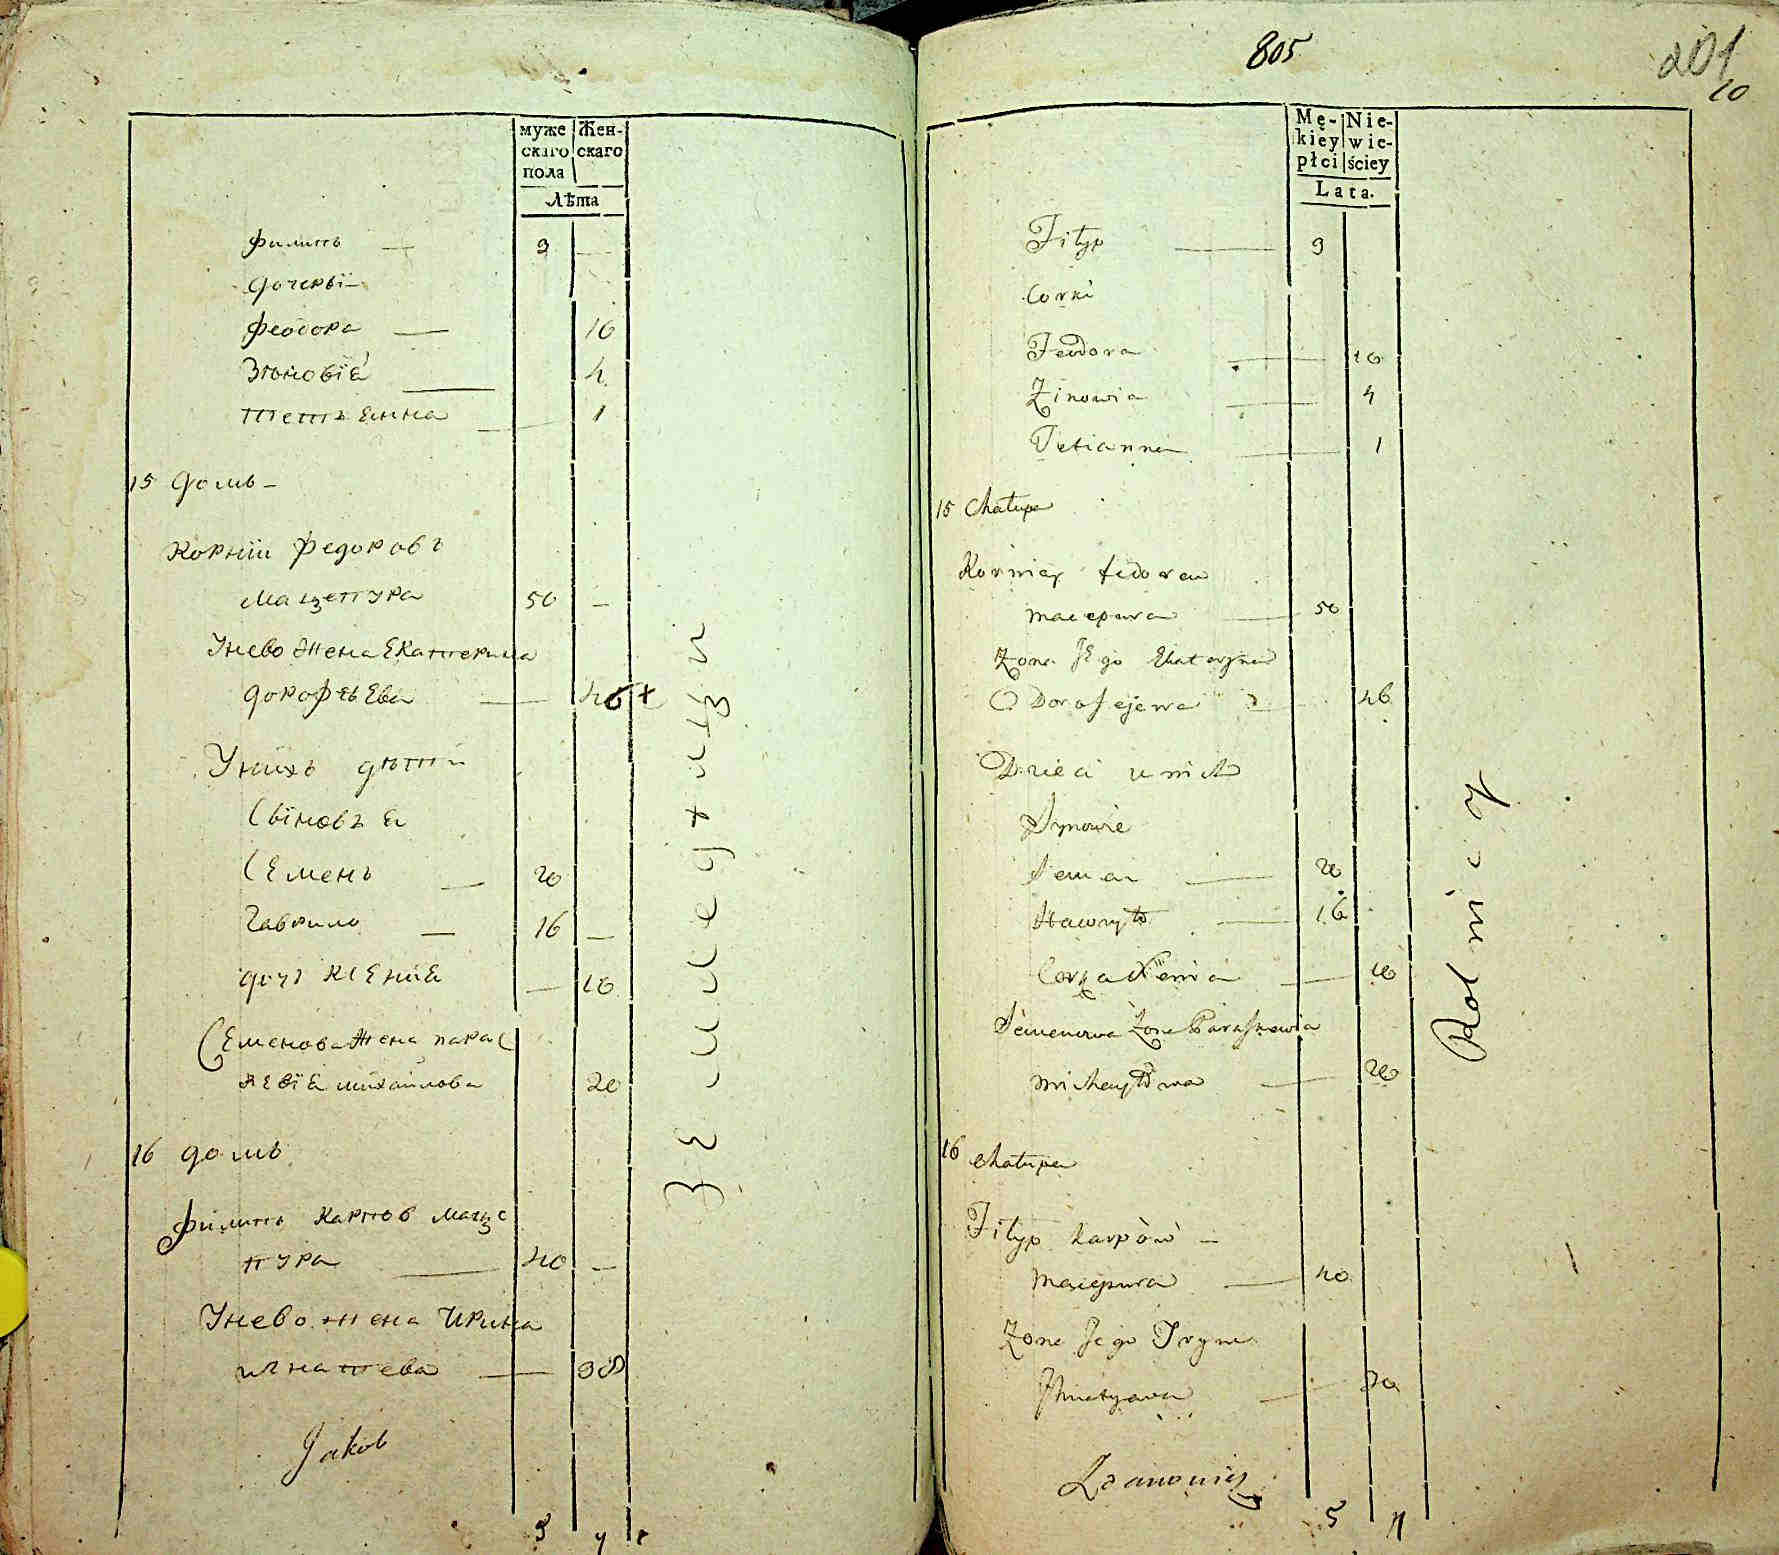 муже Жен-
скаго скаго
пола
Лѣта
Филипъ — 9 —
дочерӥ —
Феодора — 16
Зѣновїа — 4
Тетъенна — 1
15 домъ —
Корнїи Федоровъ
Мацепура 50 —
Унево жена Екатерина
дорофѣева — 46
Унихъ дѣтїи
Свїновъа
Семенъ — 20
Гаврило — 16 —
дочъ Ксенїа — 10
Семенова жена парас
кевїа михаилова 20
16 домъ
Филипъ Карпов маце
пура — 40 —
Унево жена Ирина
игнатева — 38
Jakob
5 7
Земледѣлцӥ
805
201
10
Mę- Nie-
kiey wie-
płci ściey
Lata.
Filyp — 9
Corki
Feodora — 16
Zinowia — 4
Tetianna — 1
15 Chatupa
Korniey fedorow
macepura — 50
Zona Jego Ekateryna
Dorofejewa — 46
Dzieci u nich
Synowie
Semen — 20
Hawryło — 16
Corka Xienia — 10
Semenowa Zona Paraskewia
michayłowa — 20
16 chatupa
Filyp karpòw —
macepura — 40
Zona Jego Iryna
Ihnatyewa
5 7
Rolnicy